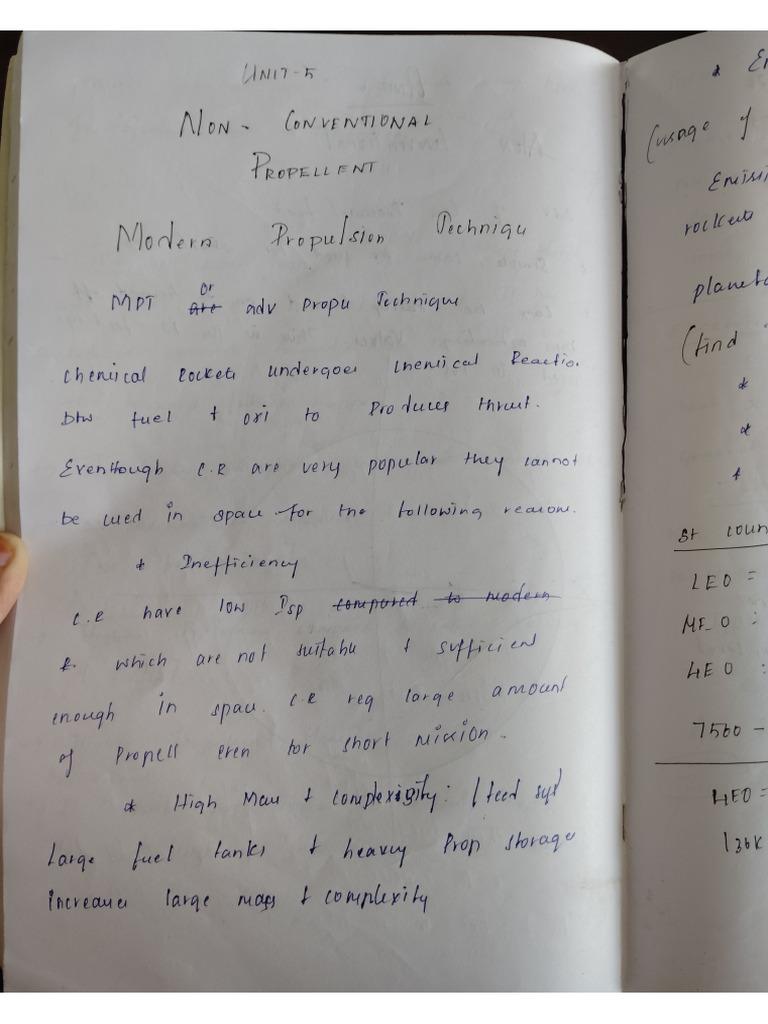 UNIT-5
NON - CONVENTIONAL
PROPELLENT
Modern Propulsion Techniqu
MPT or adv Propu Technique
chemical rockets undergoes chemical Reactio.
btw fuel + oxi to Produces thrust.
Eventhough C.R are very popular they cannot
be used in space for the following reasons.
* Inefficiency
C.R have low Isp compared to modern
R. which are not suitable + sufficient
enough in space. C.R req large amount
of Propell even for short mission.
* High Mass + complexisity: (feed sys)
Large fuel tanks + heavy Prop storage
increases large mass + complexity
* E
(usage of
Emissi
rockets
planeta
(find
*
*
*
St coun
LEO =
MEO :
HEO :
7560 -
HEO =
136K